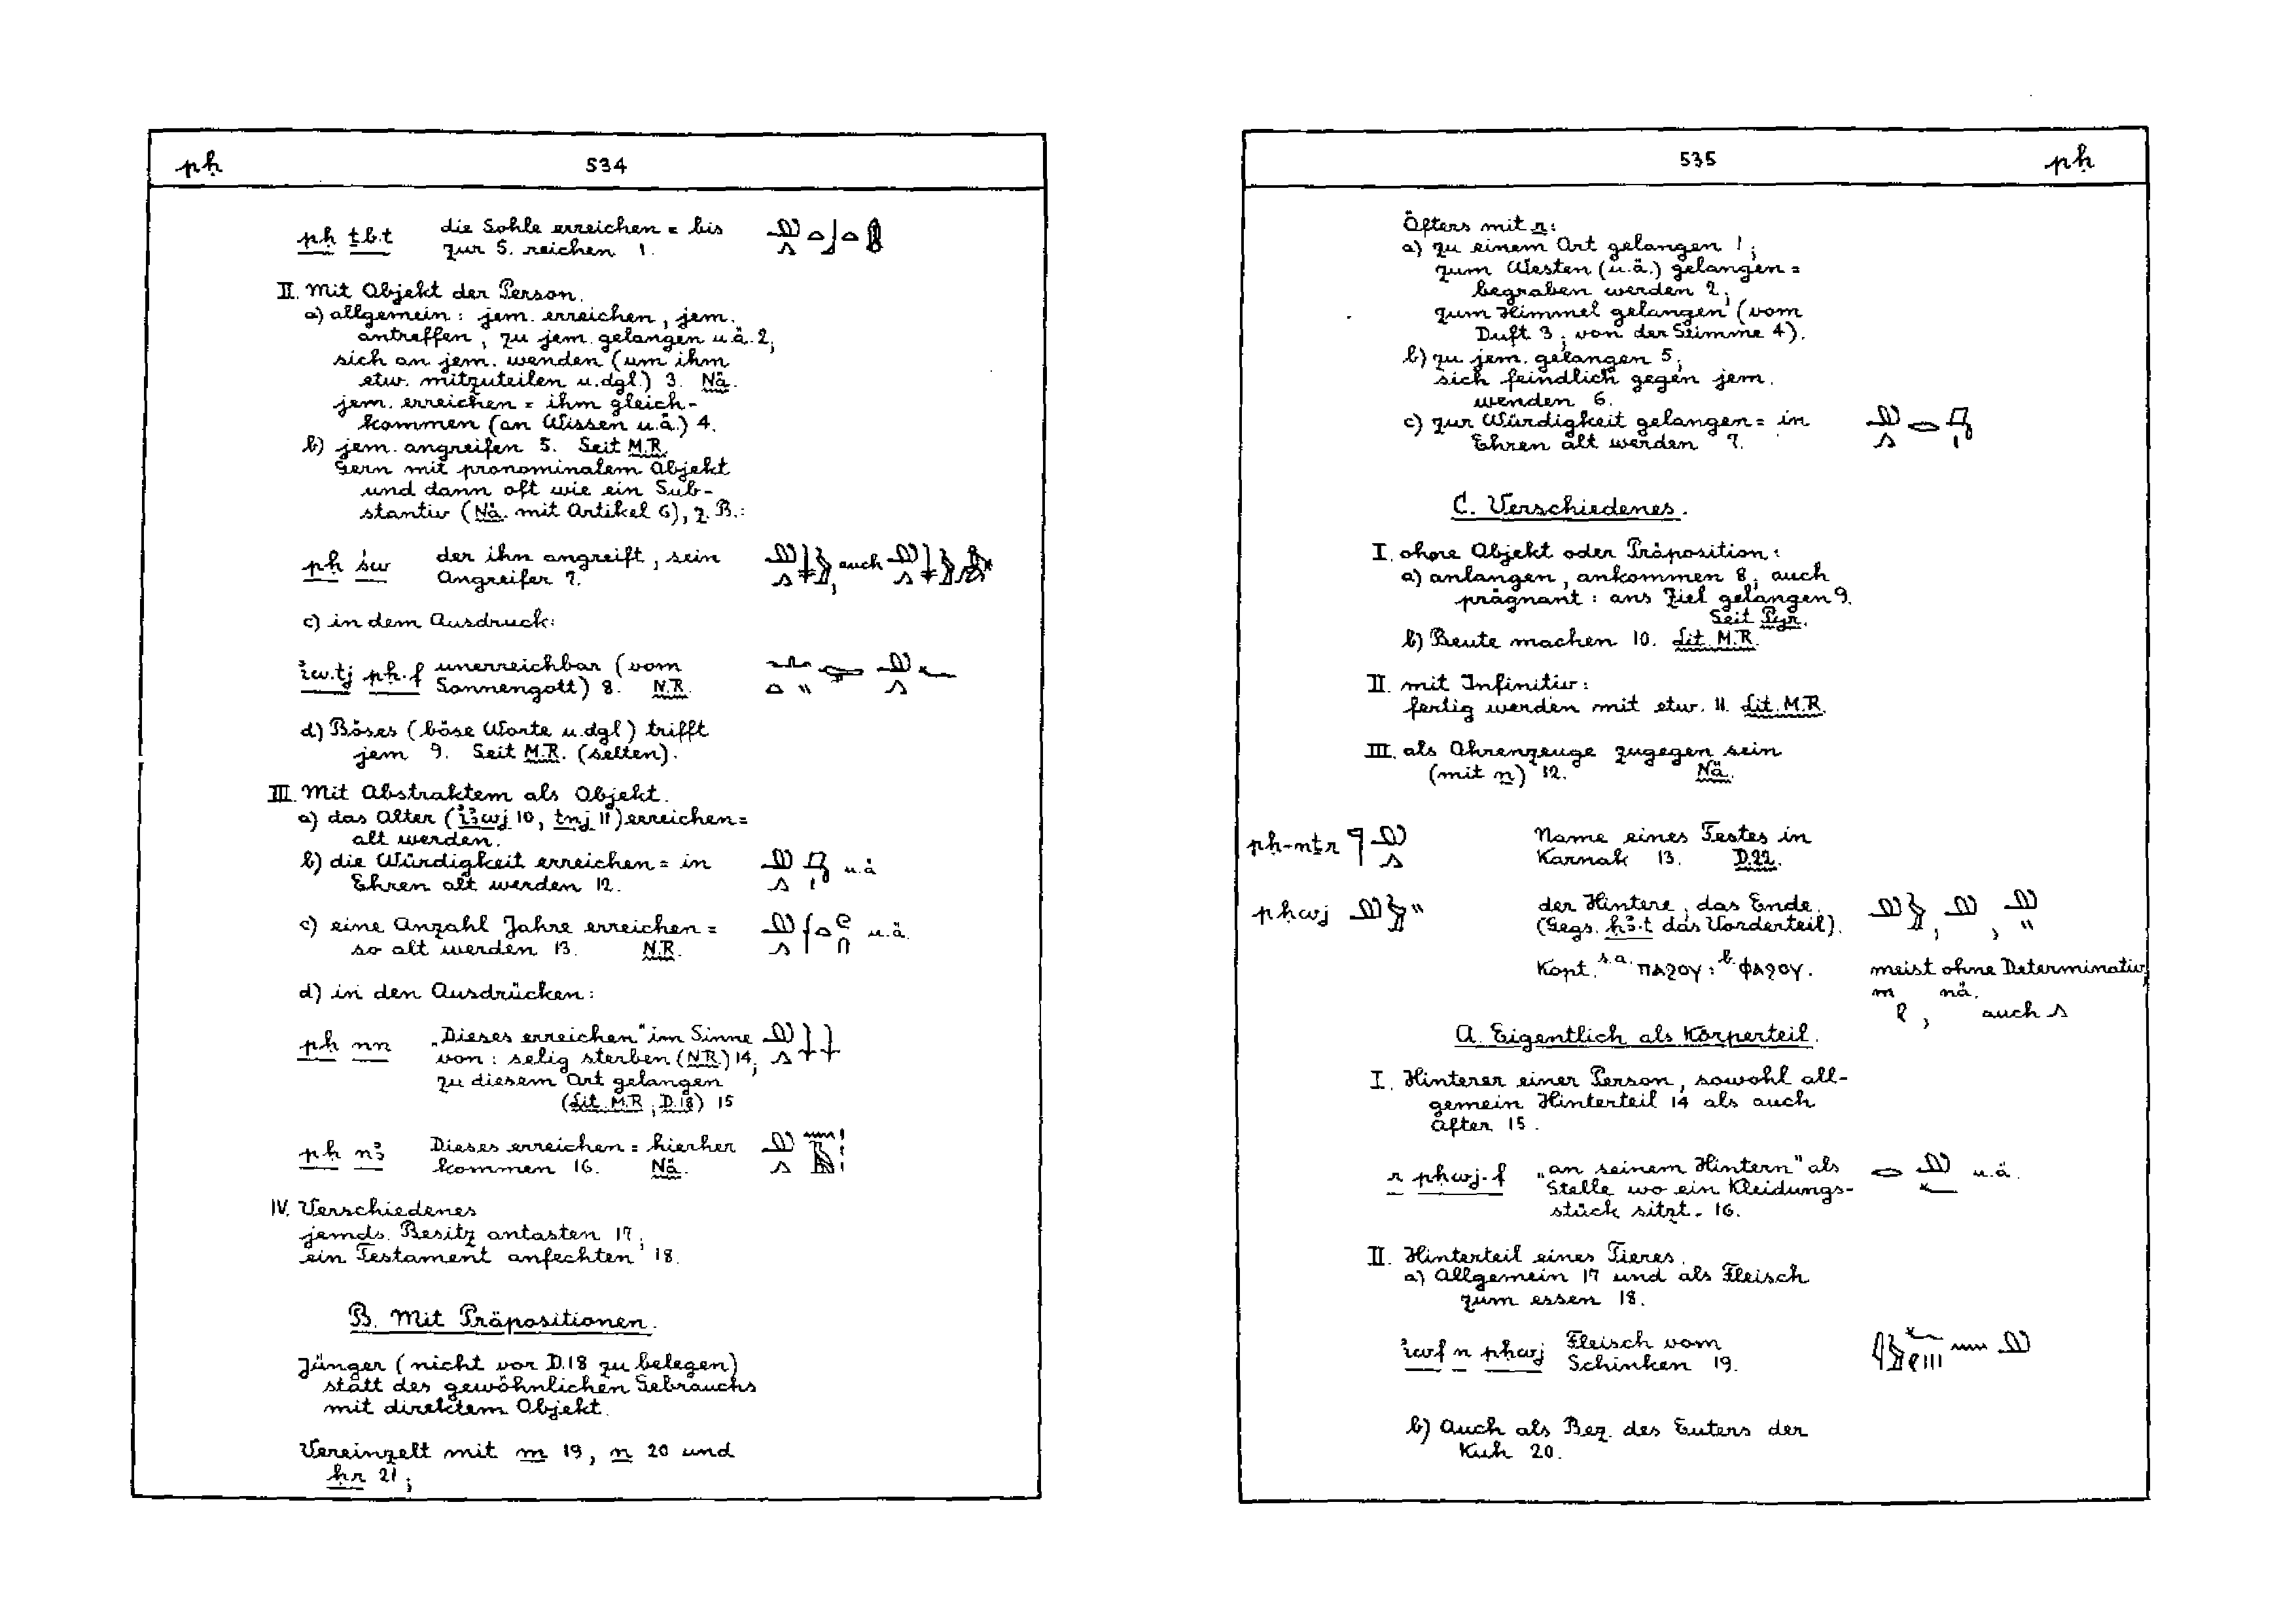 pḥ 534
pḥ ṯb.t die Sohle erreichen = bis
zur S. reichen 1.
II. Mit Objekt der Person.
a) allgemein: jem. erreichen, jem.
antreffen, zu jem. gelangen u.ä. 2;
sich an jem. wenden (um ihm
etw. mitzuteilen u.dgl.) 3. Nä.
jem. erreichen = ihm gleich-
kommen (an Wissen u.ä.) 4.
b) jem. angreifen 5. Seit M.R.
Gern mit pronominalem Objekt
und dann oft wie ein Sub-
stantiv (Nä. mit Artikel 6), z.B.:
pḥ św der ihn angreift, sein auch
Angreifer 7.
c) in dem Ausdruck:
iw.tj pḥ.f unerreichbar (vom
Sonnengott) 8. N.R.
d) Böses (böse Worte u.dgl.) trifft
jem. 9. Seit M.R. (selten).
III. Mit Abstraktem als Objekt.
a) das Alter (iꜣwj 10, tnj 11) erreichen =
alt werden.
b) die Würdigkeit erreichen = in u.ä.
Ehren alt werden 12.
c) eine Anzahl Jahre erreichen = u.ä.
so alt werden 13. N.R.
d) in den Ausdrücken:
pḥ nn „Dieses erreichen" im Sinne
von: selig sterben (NR) 14;
zu diesem Ort gelangen
(Lit. M.R., D.18) 15
pḥ nꜣ Dieses erreichen = hierher
kommen 16. Nä.
IV. Verschiedenes
jemds. Besitz antasten 17;
ein Testament anfechten 18.
B. Mit Präpositionen.
Jünger (nicht vor D.18 zu belegen)
statt des gewöhnlichen Gebrauchs
mit direktem Objekt.
Vereinzelt mit m 19, n 20 und
ḥr 21;
535 pḥ
Öfters mit r:
a) zu einem Ort gelangen 1;
zum Westen (u.ä.) gelangen =
begraben werden 2;
zum Himmel gelangen (vom
Duft 3; von der Stimme 4).
b) zu jem. gelangen 5;
sich feindlich gegen jem.
wenden 6.
c) zur Würdigkeit gelangen = in
Ehren alt werden 7.
C. Verschiedenes.
I. ohne Objekt oder Präposition:
a) anlangen, ankommen 8; auch
prägnant: ans Ziel gelangen 9.
Seit Pyr.
b) Beute machen 10. Lit. M.R.
II. mit Infinitiv:
fertig werden mit etw. 11. Lit. M.R.
III. als Ohrenzeuge zugegen sein
(mit n) 12. Nä.
pḥ-nṯr Name eines Festes in
Karnak 13. D.22.
pḥwj der Hintere, das Ende.
(Gegs. ḥꜣ.t das Vorderteil).
Kopt. s.a. ⲡⲁϩⲟⲩ: b. ⲫⲁϩⲟⲩ. meist ohne Determinativ,
nä. auch
A. Eigentlich als Körperteil.
I. Hinterer einer Person, sowohl all-
gemein Hinterteil 14 als auch
After 15.
r pḥwj.f „an seinem Hintern" als u.ä.
Stelle wo ein Kleidungs-
stück sitzt. 16.
II. Hinterteil eines Tieres.
a) Allgemein 17 und als Fleisch
zum essen 18.
iwf n pḥwj Fleisch vom
Schinken 19.
b) Auch als Bez. des Euters der
Kuh 20.